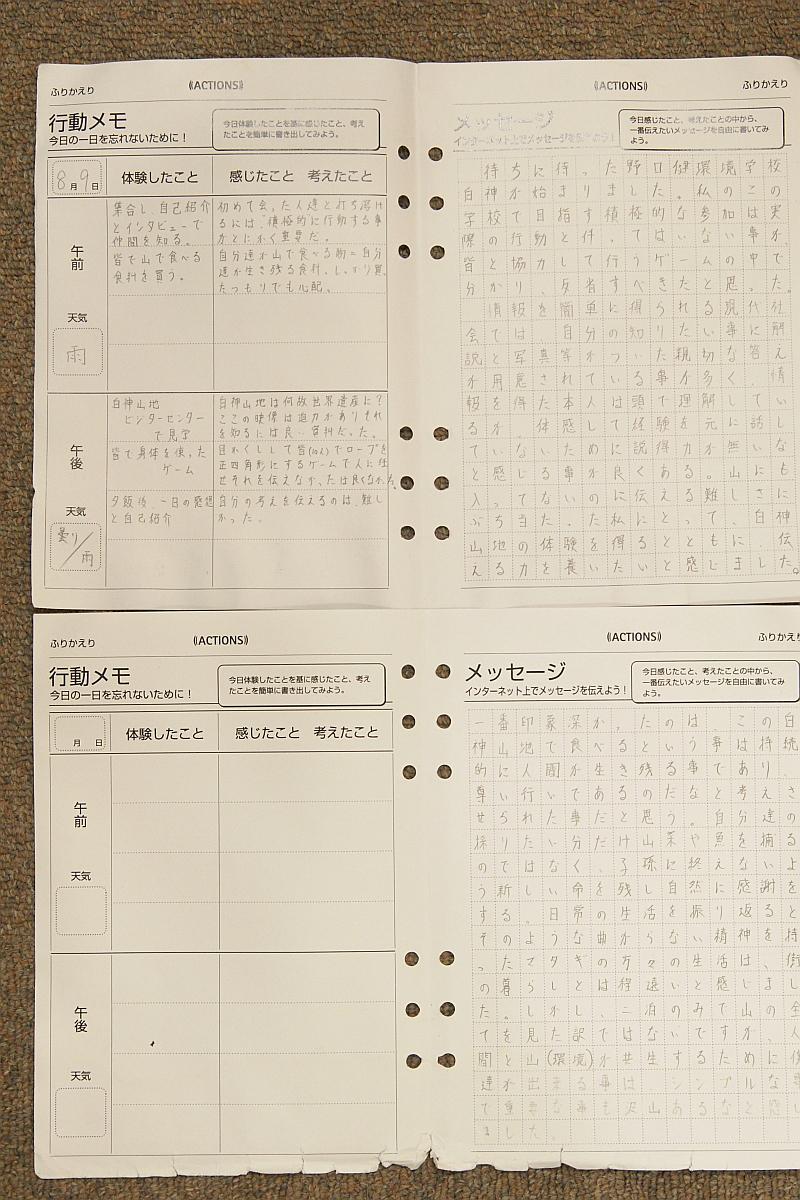 ふりかえり
((ACTIONS))
行動メモ
今日の一日を忘れないために！
今日体験したことを基に感じたこと、考え
たことを簡単に書き出してみよう。
8月9日
体験したこと
感じたこと 考えたこと
午前
天気
雨
集合し、自己紹介
とインタビューで
仲間を知る。
皆で山で食べる
食料を買う。
初めて会った人達と打ち溶け
るには、積極的に行動する事
がとにかく重要だ。
自分達が山で食べる物＝自分
達が生き残る食料、しっかり買っ
たつもりでも心配。
午後
天気
曇り/雨
白神山地
ビジターセンター
で見学
皆で身体を使った
ゲーム
夕飯後、一日の感想
と自己紹介
白神山地は何故世界遺産に？
ここの映像は迫力がありそれ
を知るには良い資料だった。
目かくしして皆(10人)でロープを
正四角形にするゲームで人に任
せそれを伝えなかったは良くなかった。
自分の考えを伝えるのは、難し
かった。
((ACTIONS))
ふりかえり
メッセージ
インターネット上でメッセージを伝えよう！
今日感じたこと、考えたことの中から、
一番伝えたいメッセージを自由に書いてみ
よう。
待ちに待った野口健環境学校
白神が始まりました。私のこの
学校で目指す積極的な参加は実
際の行動と伴ってはいない事が
皆と協力して行うゲームの中で
分かり、反省すべきだと思った。
情報を簡単に得られる現代社
会では、自分の知りたい事に解
説と写真等がついた親切な答え
が用意されている事が多く、情
報を得た本人は頭で理解してい
るが、体感して経験を元に話し
ていないために説得力が無いな
と感じる事が良くある。山にも
入ってないのに伝える難しさに
ぶち当たった私にとって、白神
山地の体験を得るとともに、伝
える力を養いたいと感じました。
ふりかえり
((ACTIONS))
行動メモ
今日の一日を忘れないために！
今日体験したことを基に感じたこと、考え
たことを簡単に書き出してみよう。
月 日
体験したこと
感じたこと 考えたこと
午前
天気
午後
天気
((ACTIONS))
ふりかえり
メッセージ
インターネット上でメッセージを伝えよう！
今日感じたこと、考えたことの中から、
一番伝えたいメッセージを自由に書いてみ
よう。
一番印象深かったのは、この白
神山地で食べるという事は持続
的に人間が生き残る事であり、
尊い行いであるのだなと考えさ
せられた事だと思う。自分達の
採りたい分だけ山菜や魚を捕る
のではなく、子孫に終えないよ
う新しい命を残し自然に感謝を
する。日常の生活を振り返ると
そのような曲がらない精神を持
ったマタギの方々の生活は、街
の暮らしとは程遠いと感じまし
た。しかし、二泊のみで山の全
てを見た訳ではないですが、人
間と山(環境)が共生するために
達が出来る事は シンプルな
て重要な事も沢山あるなと感じ
ました。